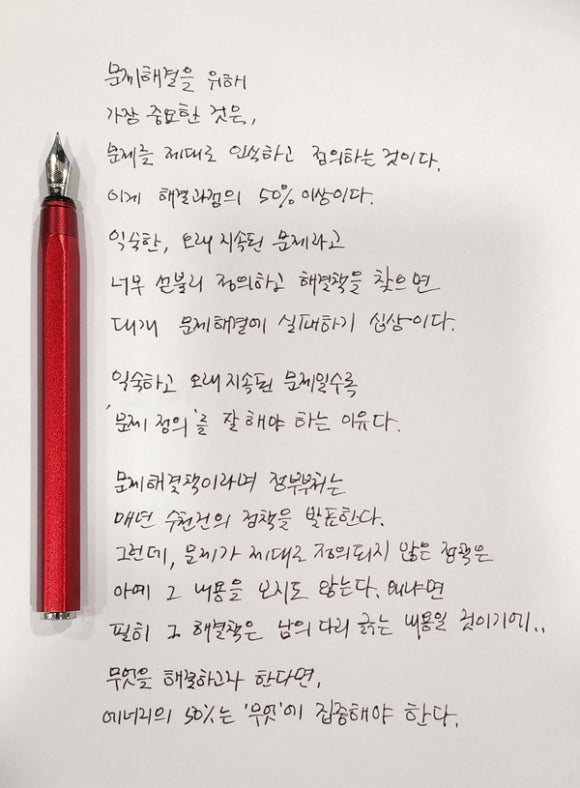 문제해결을 위해
가장 중요한 것은,
문제를 제대로 인식하고 정의하는 것이다.
이게 해결과정의 50% 이상이다.
익숙한, 오래 지속된 문제라고
너무 섣불리 정의하고 해결책을 찾으면
대개 문제해결에 실패하기 십상이다.
익숙하고 오래 지속된 문제일수록
'문제 정의'를 잘 해야 하는 이유다.
문제해결책이라며 정부부처는
매년 수천건의 정책을 발표한다.
그런데, 문제가 제대로 정의되지 않은 정책은
아예 그 내용을 보지도 않는다. 왜냐면
필히 그 해결책은 남의 다리 긁는 내용일 것이기에..
무엇을 해결하고자 한다면,
에너지의 50%는 '무엇'에 집중해야 한다.